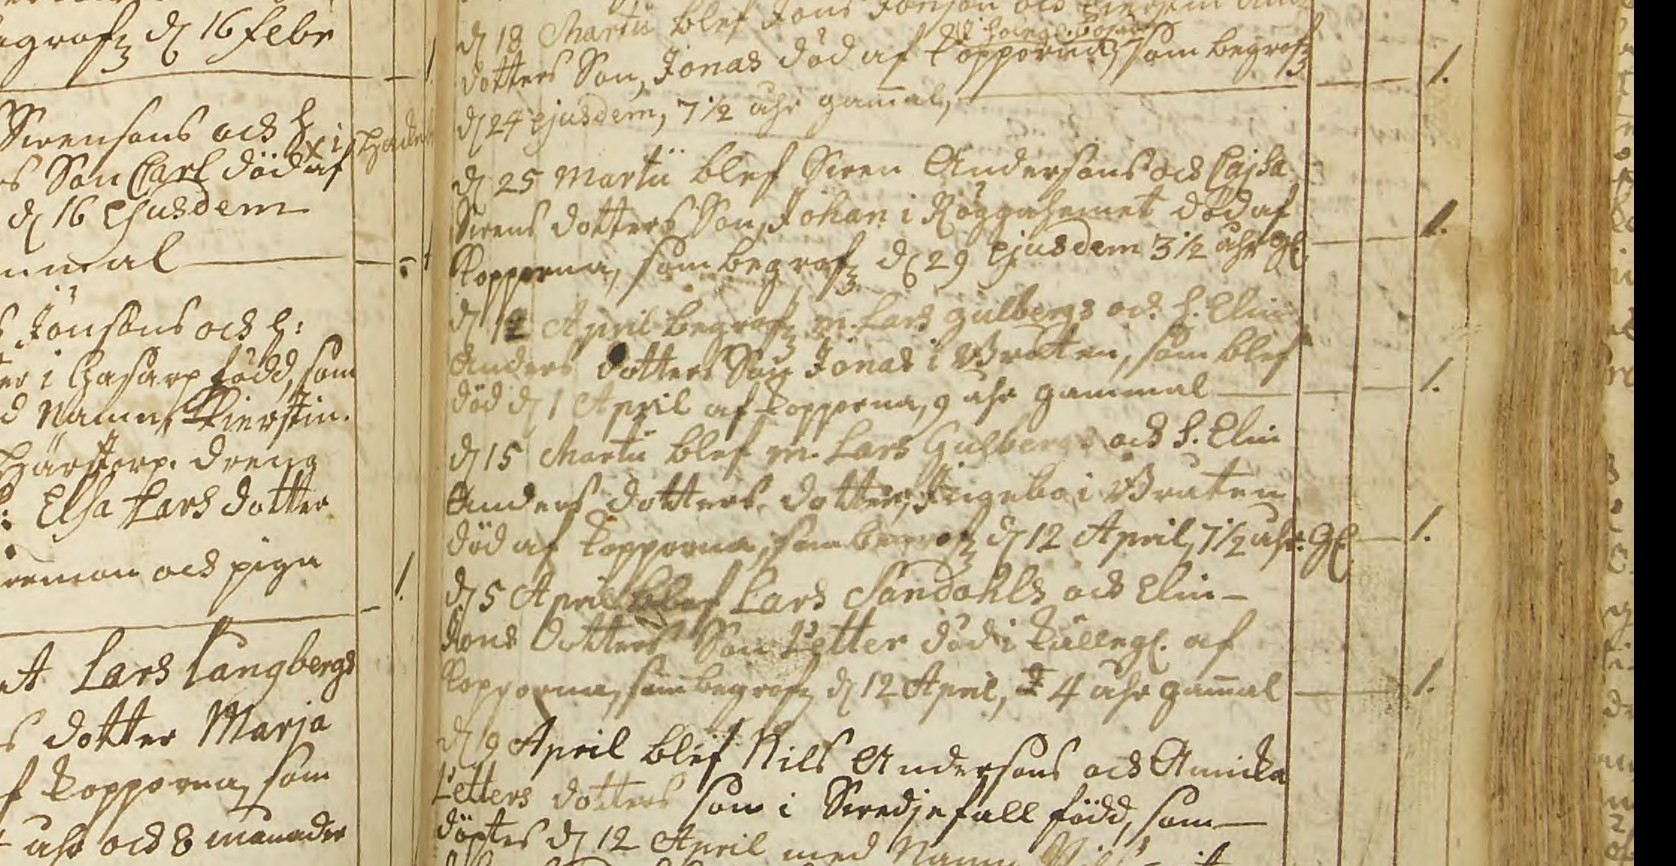 agrafz d 16 Febr
Svensons och h
s Son Carl död af
d 16 Ejusdem
mmal
s Jönsons och h:
er i Gasarp född, som
d Namn Kierstin.
Härstorp. dreng
: Elsa Lars dotter
reman och piga
At Lars Långbergs
s dotter Marja
f kopporna, som
åhr och 8 månader
d 18 Martii blef Jons Jonson och
dotters Son, Jonas död af kopporna, som begrafz
d 24 ejusdem, 7 1/2 åhr gamal,
d 25 Martii blef Sven Andersons och Cajsa
Svens dotters Son, Johan i Röggahemet död af
kopporna, som begrafz d 29 Ejusdem 3 1/2 åhr gl.
d 12 April begrafz m. Lars gulbergs och h. Elin
Anders dotters Son Jonas i Bråten, som blef
död d 1 April af kopporna, 9 åhr gammal
d 15 Martii blef m. Lars Gulbergs och h. Elin
Anders dotters dotter, Ingebo i Bråten
död af kopporna, som begrafz d 12 April, 7 1/2 åhr. gl
d 5 April blef Lars Sandahls och Elin
Jons dotters Son Petter död i af
kopporna, som begrafz d 12 April, 4 åhr gamal
d 9 April blef Nils Andersons och Annicka
Petters dotters son i Svedjefall född, som
döptes d 12 April med Namn
1.
1.
1.
1.
1.